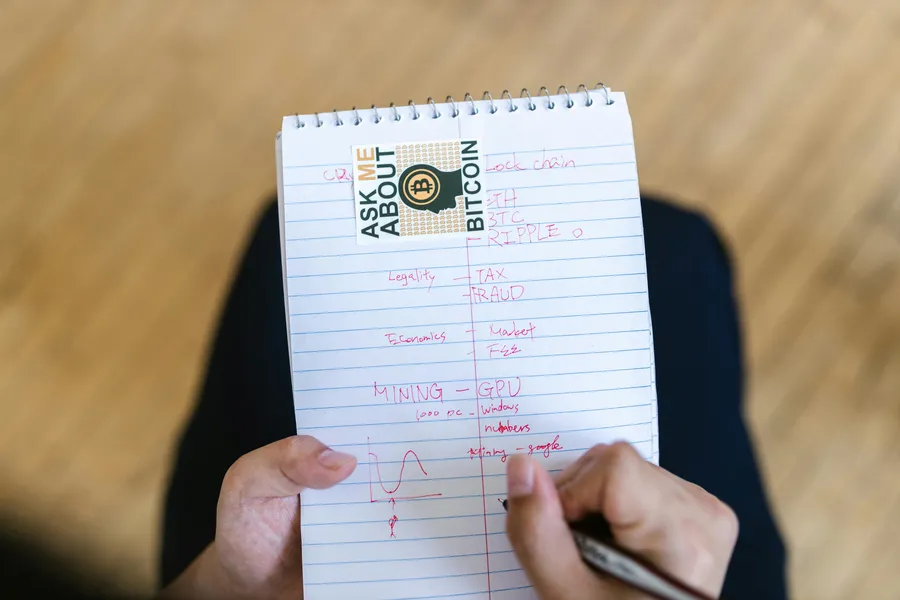 ASK ME
ABOUT
BITCOIN
lock chain
TH
BTC
RIPPLE
Legality — TAX
- FRAUD
Economics - Market
MINING - GPU
1,000 PC - Windows
numbers
Mining - google